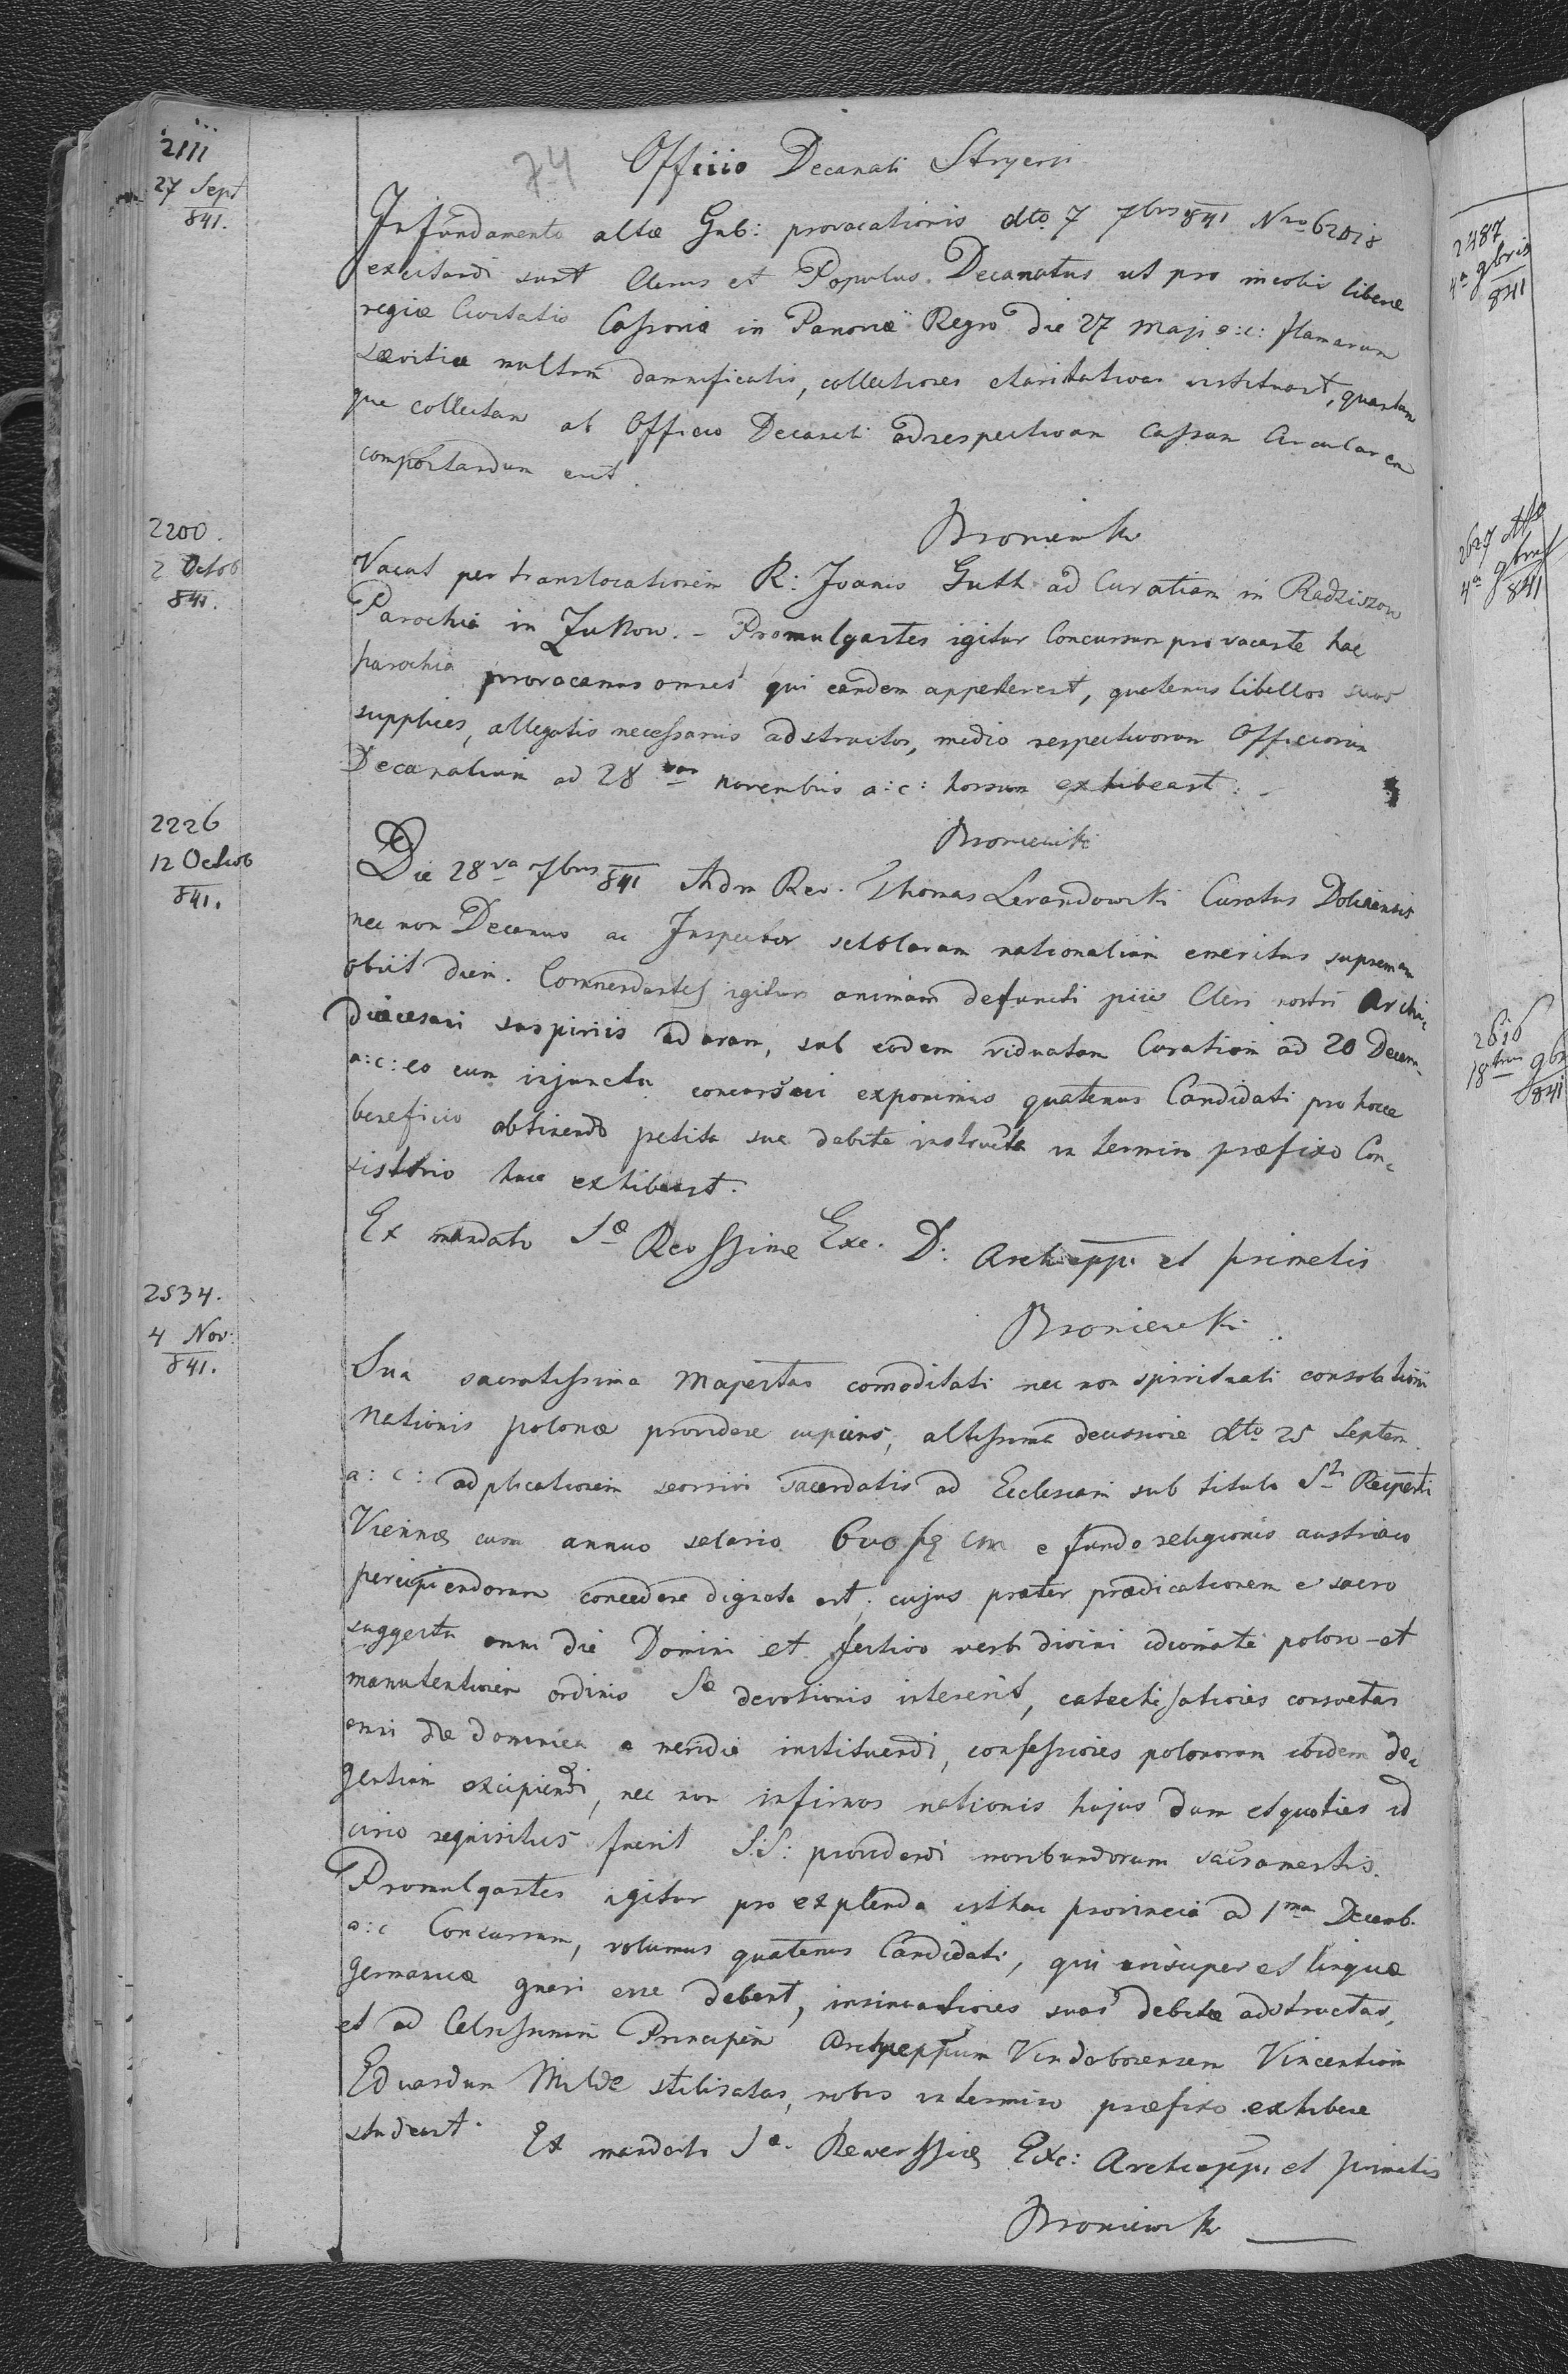 2111
27 Sept
841.
74
Officio Decanati Stryensi
In fundamento altæ Gub: provocationis dto 7 7bris 841 Nro 62018
excitandi sunt Clerus et Populus Decanatus ut pro incolis liberæ
regiæ Civitatis Cassoviæ in Panoniæ Regno die 27 Maji a: c: flamarum
sævitia multum damnificatis, collectiones charitativas instituant, quantum
que collectam ab Officio Decanali ad respectivam Cassam Circularem
comportandum erit.
Broniewski
2200.
2 Octob
841.
Vacat per translocationem R: Joanis Guth ad Curatiam in Radziszow
Parochia in Zukow. - Promulgantes igitur Concursum pro vacante hac
parochia provocamus omnes qui eandem appeterent, quatenus libellos suos
supplices, allegatis necessariis adstructos, medio respectivorum Officiorum
Decanalium ad 28 novembris a: c: horsum exhibeant. -
Broniewski
2226
12 Octob
841.
Die 28va 7bris 841 Adm Rev. Thomas Levandowski Curatus Dolinensis
nec non Decanus ac Inspector scholarum nationalium emeritus supremam
obiit diem. Commendantes igitur animam defuncti piis Cleri nostri Archi-
diæcesani suspiriis ad aram, sub eodem viduatam Curatiam ad 20 Decem-
a: c: eo cum injuncto concursui exponimus quatenus Candidati pro hocce
beneficio obtinendo petita sua debite instructa in termino præfixo Con-
sistorio huic exhibeant.
Ex mandato Sæ Revssimæ Exc. D: Archieppi et primatis
Broniewski
2534.
4 Nov:
841.
Sua sacratissima Majestas comoditati nec non spirituali consolationi
Nationis polonæ providere cupiens, altissima decissione dto 25 Septem.
a: c: adplicationem seorsivi sacerdotis ad Ecclesiam sub titulo Sti Ruperti
Viennæ cum annuo salario 600 f CM e fundo religionis austriaco
percipiendorum concedere dignata est; cujus præter prædicationem e sacro
suggestu omni die Domini et festivo verbi divini idiomate polono - et
manutentionem ordinis Sæ devotionis intererit, catechisationes consvetas
omni die dominica a meridie instituendi, confessiones polonorum ibidem de-
gentium excipiendi, nec non infirmos nationis hujus dum et quoties id
circo requisitus fuerit S.S: providendi moribundorum sacramentis.
Promulgantes igitur pro explenda isthac provincia ad 1ma Decemb.
a: c Concursum, volumus quatenus Candidati, qui insuper et linguæ
Germanicæ gnari esse debent, insinuationes suas debite adstructas,
et ad Celsissimum Principem Archieppum Vindobonensem Vincentium
Eduardum Milde stilisatas, nobis in termino præfixo exhibere
studeant. Ex mandato Sæ Reverssimæ Exc: Archieppi et primatis
Broniewski
2487
4a 9bris
841
2627
4a 9bris
841
18
841